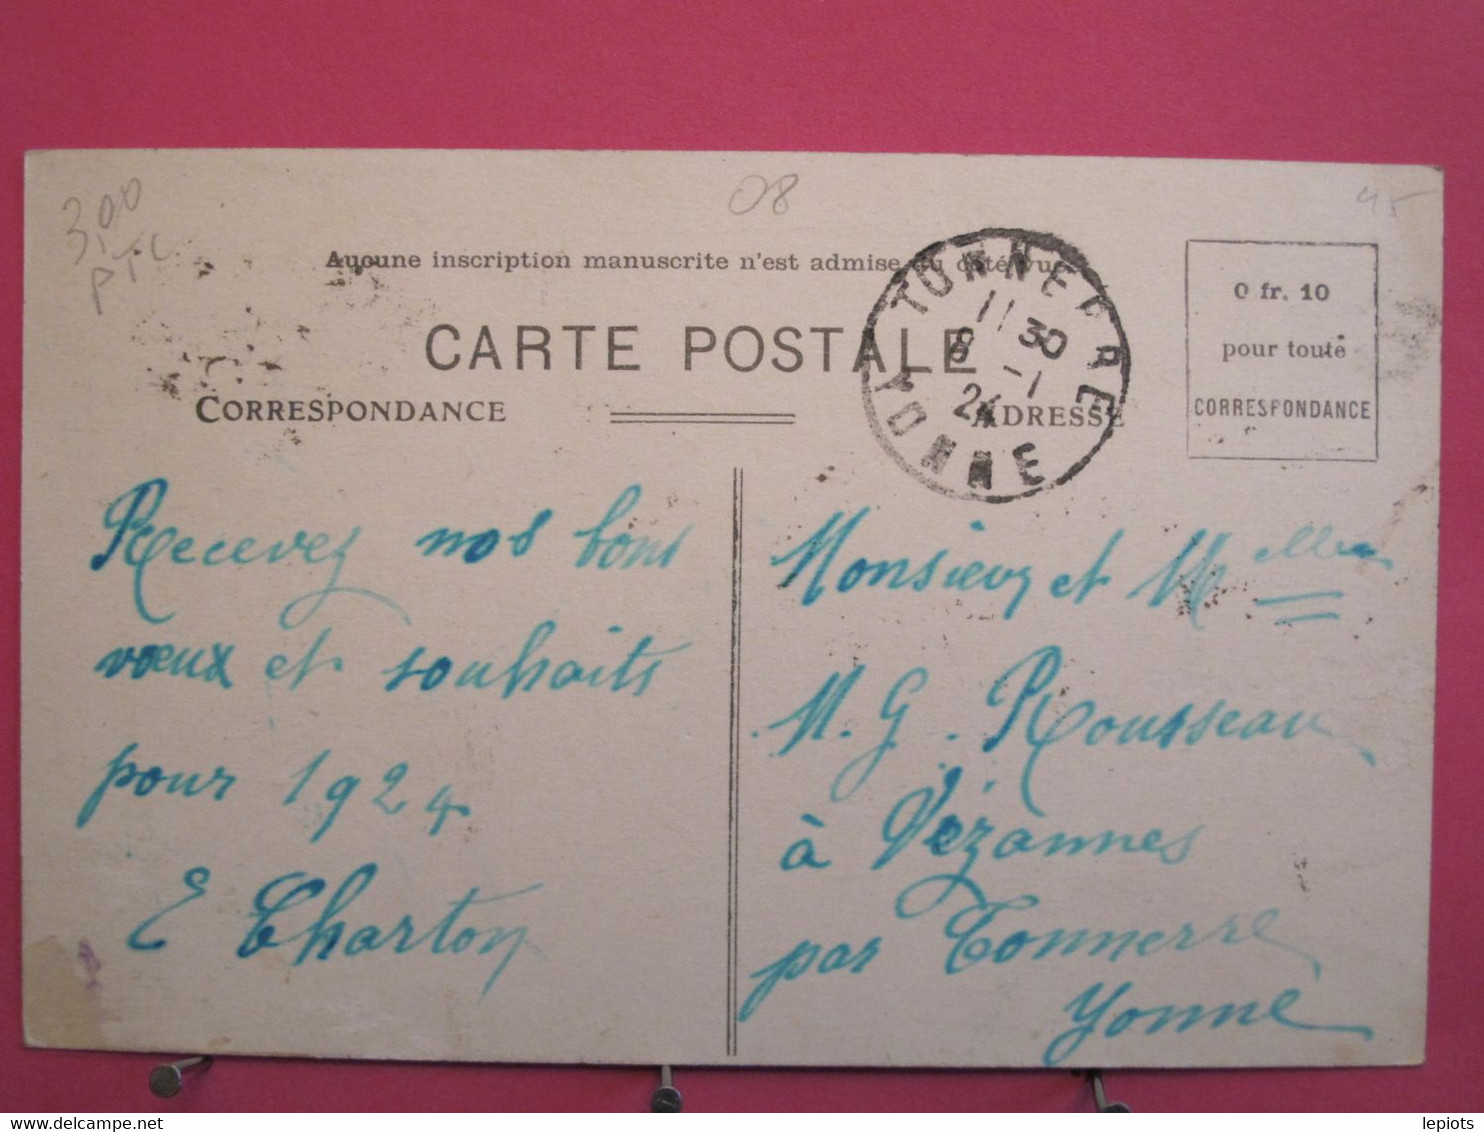 3,00
PTC
08
45
Aucune inscription manuscrite n'est admise du côté vue
CARTE POSTALE
CORRESPONDANCE
ADRESSE
TONNERRE
11 30
8 -1
24
YONNE
0 fr. 10
pour toute
CORRESPONDANCE
Recevez nos bons
vœux et souhaits
pour 1924
E Charton
Monsieur et Melles
M. G. Rousseau
à Vézannes
par Tonnerre
Yonne
lepiots